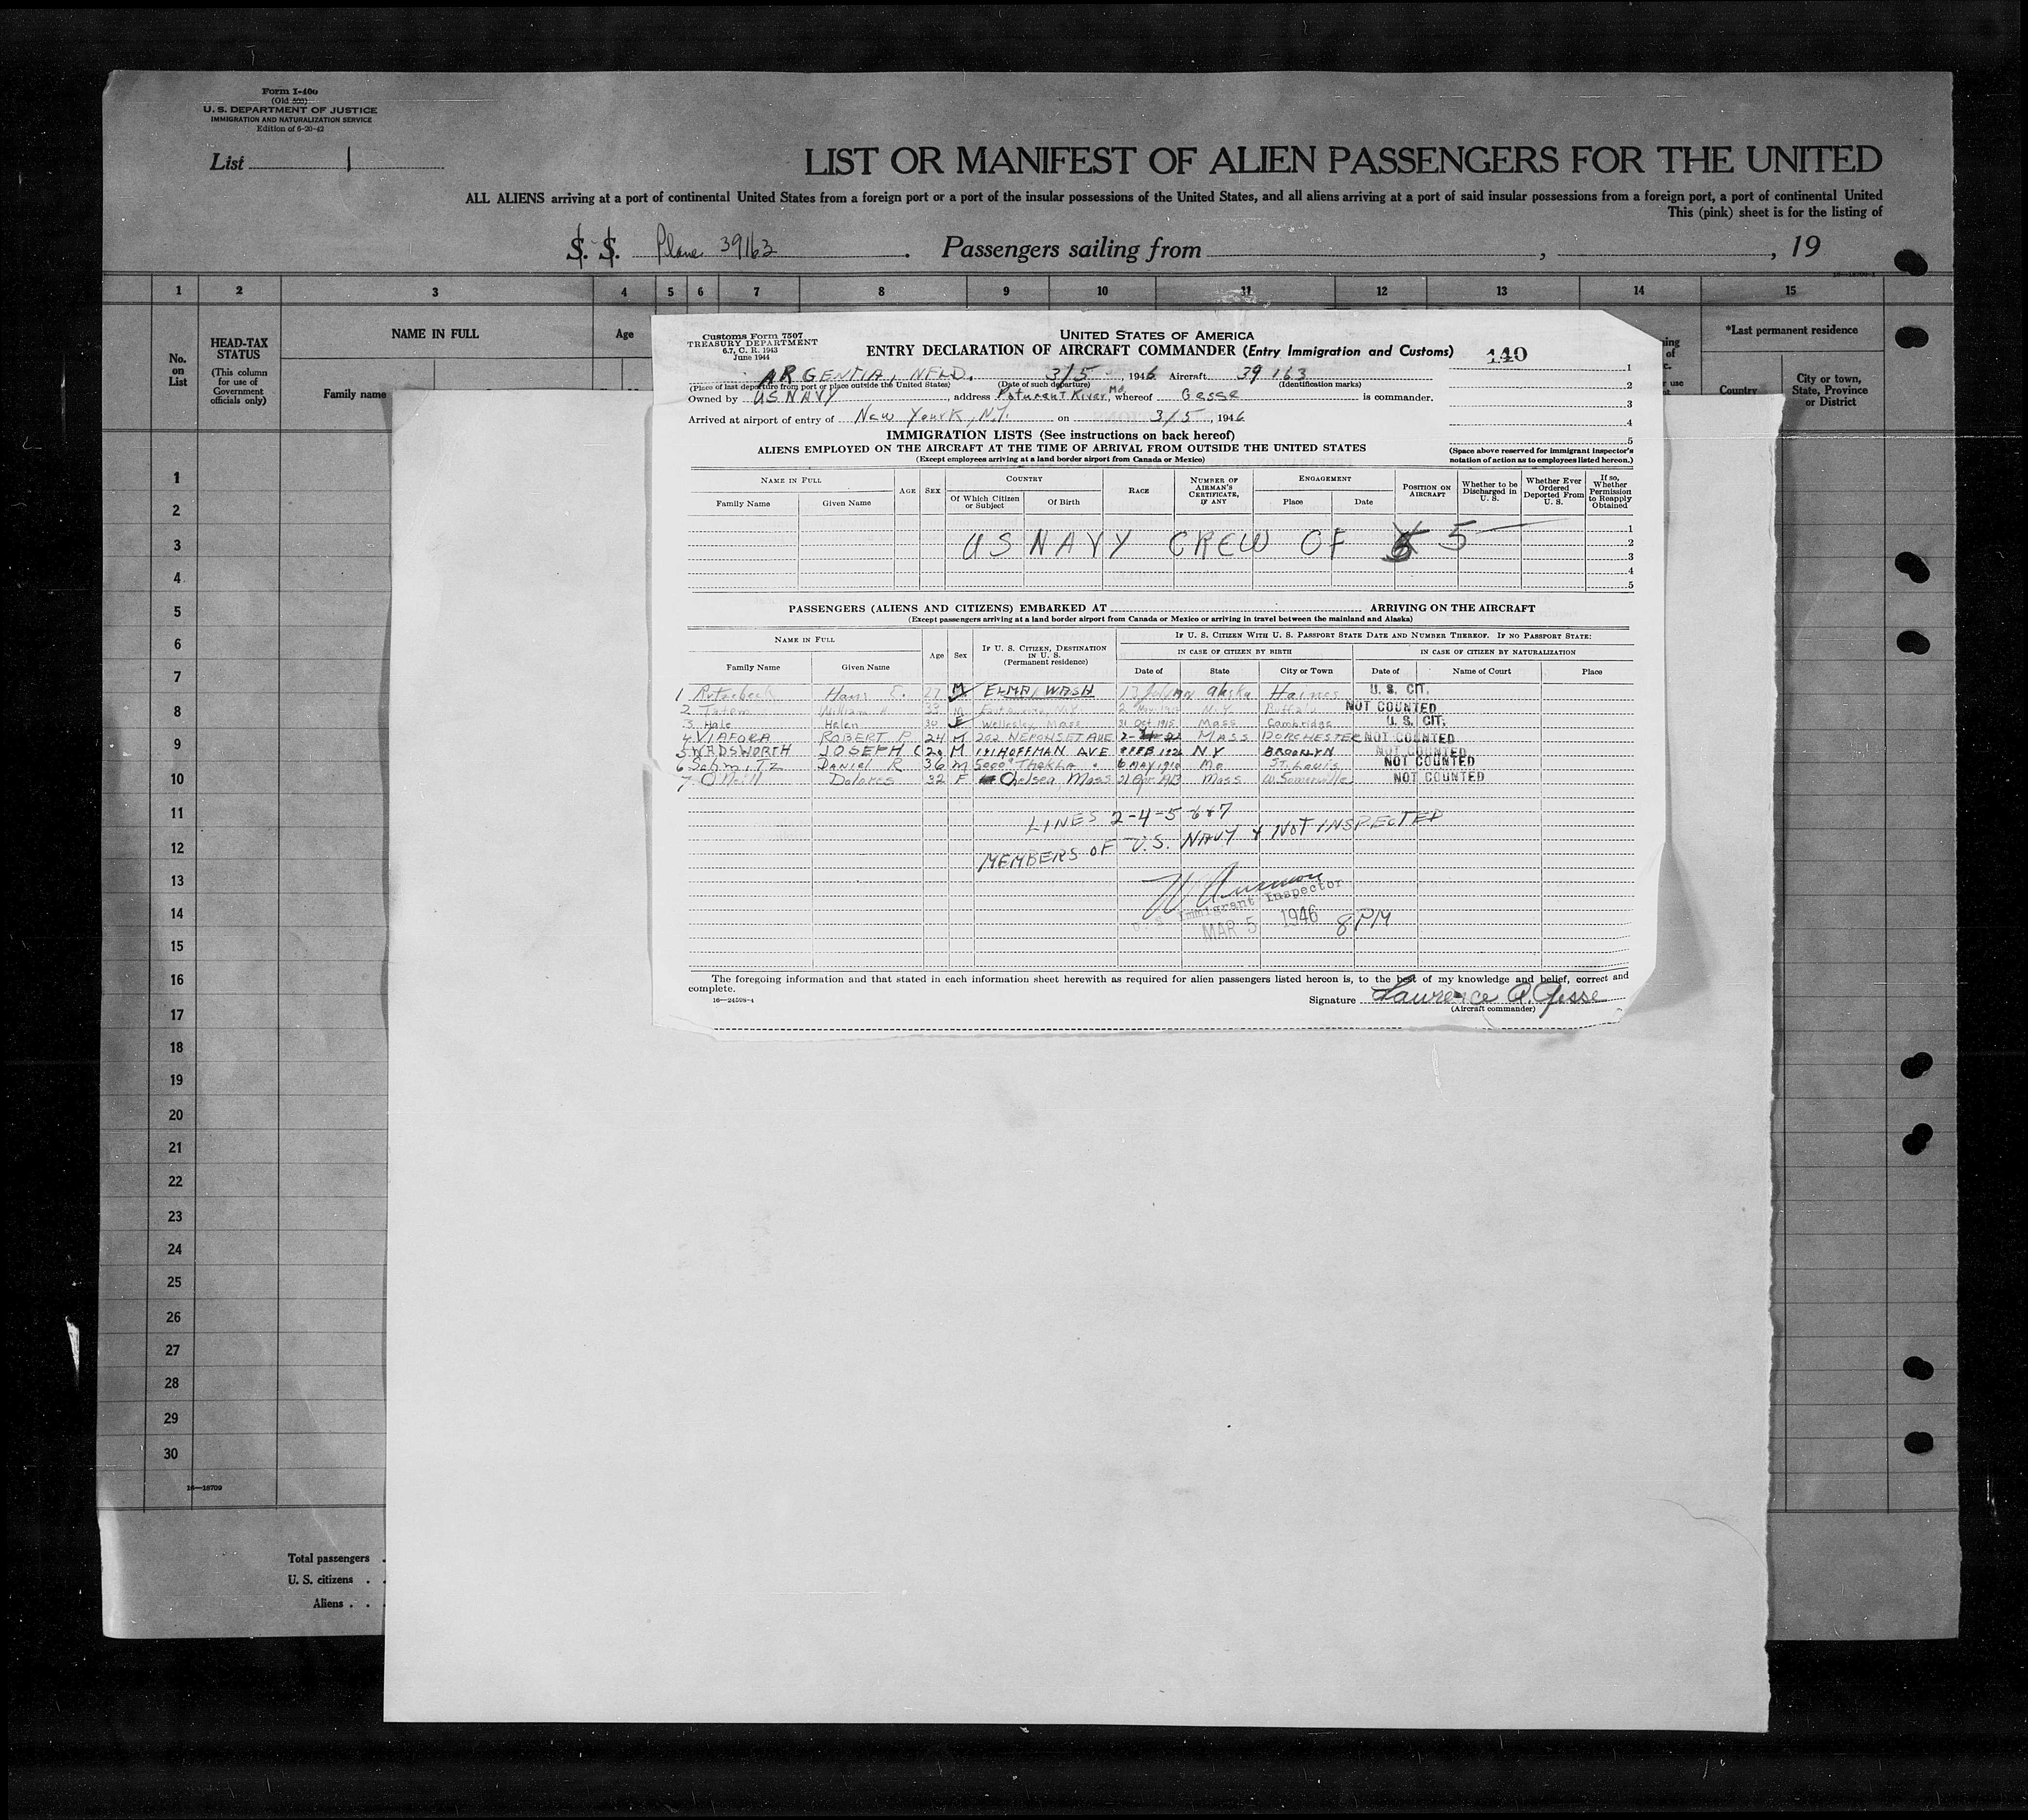 Form I-400
(Old 500)
U. S. DEPARTMENT OF JUSTICE
IMMIGRATION AND NATURALIZATION SERVICE
Edition of 6-20-42
List 1
LIST OR MANIFEST OF ALIEN PASSENGERS FOR THE UNITED
ALL ALIENS arriving at a port of continental United States from a foreign port or a port of the insular possessions of the United States, and all aliens arriving at a port of said insular possessions from a foreign port, a port of continental United
This (pink) sheet is for the listing of
S. S. Plane 39163. Passengers sailing from , , 19
1 2 3 4 5 6 7 8 9 10 11 12 13 14 15
No. on List
HEAD-TAX STATUS
(This column for use of Government officials only)
NAME IN FULL
Age
Family name
*Last permanent residence
Country
City or town, State, Province or District
Customs Form 7507
TREASURY DEPARTMENT
6.7, C. R. 1943
June 1944
UNITED STATES OF AMERICA
ENTRY DECLARATION OF AIRCRAFT COMMANDER (Entry Immigration and Customs)
140
ARGENTIA, NFLD. 3/5, 1946 Aircraft 39163
(Place of last departure from port or place outside the United States) (Date of such departure) (Identification marks)
Owned by US NAVY, address Patuxent River, Md, whereof Gesse is commander.
Arrived at airport of entry of New Yourk, N.Y. on 3/5, 1946
1
2
3
4
5
(Space above reserved for immigrant inspector's notation of action as to employees listed hereon.)
IMMIGRATION LISTS (See instructions on back hereof)
ALIENS EMPLOYED ON THE AIRCRAFT AT THE TIME OF ARRIVAL FROM OUTSIDE THE UNITED STATES
(Except employees arriving at a land border airport from Canada or Mexico)
NAME IN FULL
Family Name Given Name
AGE SEX
COUNTRY
Of Which Citizen or Subject Of Birth
RACE
NUMBER OF AIRMAN'S CERTIFICATE, IF ANY
ENGAGEMENT
Place Date
POSITION ON AIRCRAFT
Whether to be Discharged in U. S.
Whether Ever Ordered Deported From U. S.
If so, Whether Permission to Reapply Obtained
1
2
US NAVY CREW OF 5
3
4
5
PASSENGERS (ALIENS AND CITIZENS) EMBARKED AT ARRIVING ON THE AIRCRAFT
(Except passengers arriving at a land border airport from Canada or Mexico or arriving in travel between the mainland and Alaska)
NAME IN FULL
Family Name Given Name Age Sex
IF U. S. CITIZEN, DESTINATION IN U. S. (Permanent residence)
IF U. S. CITIZEN WITH U. S. PASSPORT STATE DATE AND NUMBER THEREOF. IF NO PASSPORT STATE:
IN CASE OF CITIZEN BY BIRTH IN CASE OF CITIZEN BY NATURALIZATION
Date of State City or Town Date of Name of Court Place
1 Hans E. 27 M ELMA, WASH Alaska Haines U. S. CIT.
2 Tatem William H. 33 M N.Y. Buffalo NOT COUNTED
3 Hale Helen 30 F Wellesley, Mass 21 Oct 1915 Mass Cambridge U. S. CIT.
4 VIAFORA ROBERT P. 24 M 202 NEPONSET AVE MASS DORCHESTER NOT COUNTED
5 WADSWORTH JOSEPH C 20 M 191 HOFFMAN AVE FEB 1926 NY BROOKLYN NOT COUNTED
6 Schmitz Daniel R 36 M 5000 Thekla 6 MAY 1910 Mo ST. Louis NOT COUNTED
7 O'Neill Dolores 32 F Chelsea, Mass 21 Apr 1913 Mass W. Somerville NOT COUNTED
LINES 2-4-5 6+7
MEMBERS OF U.S. NAVY & NOT INSPECTED
U. S. Immigrant Inspector
MAR 5 1946 8 PM
The foregoing information and that stated in each information sheet herewith as required for alien passengers listed hereon is, to the best of my knowledge and belief, correct and
complete.
16—24598-4
Signature Lawrence A. Gesse
(Aircraft commander)
1
2
3
4
5
6
7
8
9
10
11
12
13
14
15
16
17
18
19
20
21
22
23
24
25
26
27
28
29
30
16—18709
Total passengers .
U. S. citizens . .
Aliens . . .